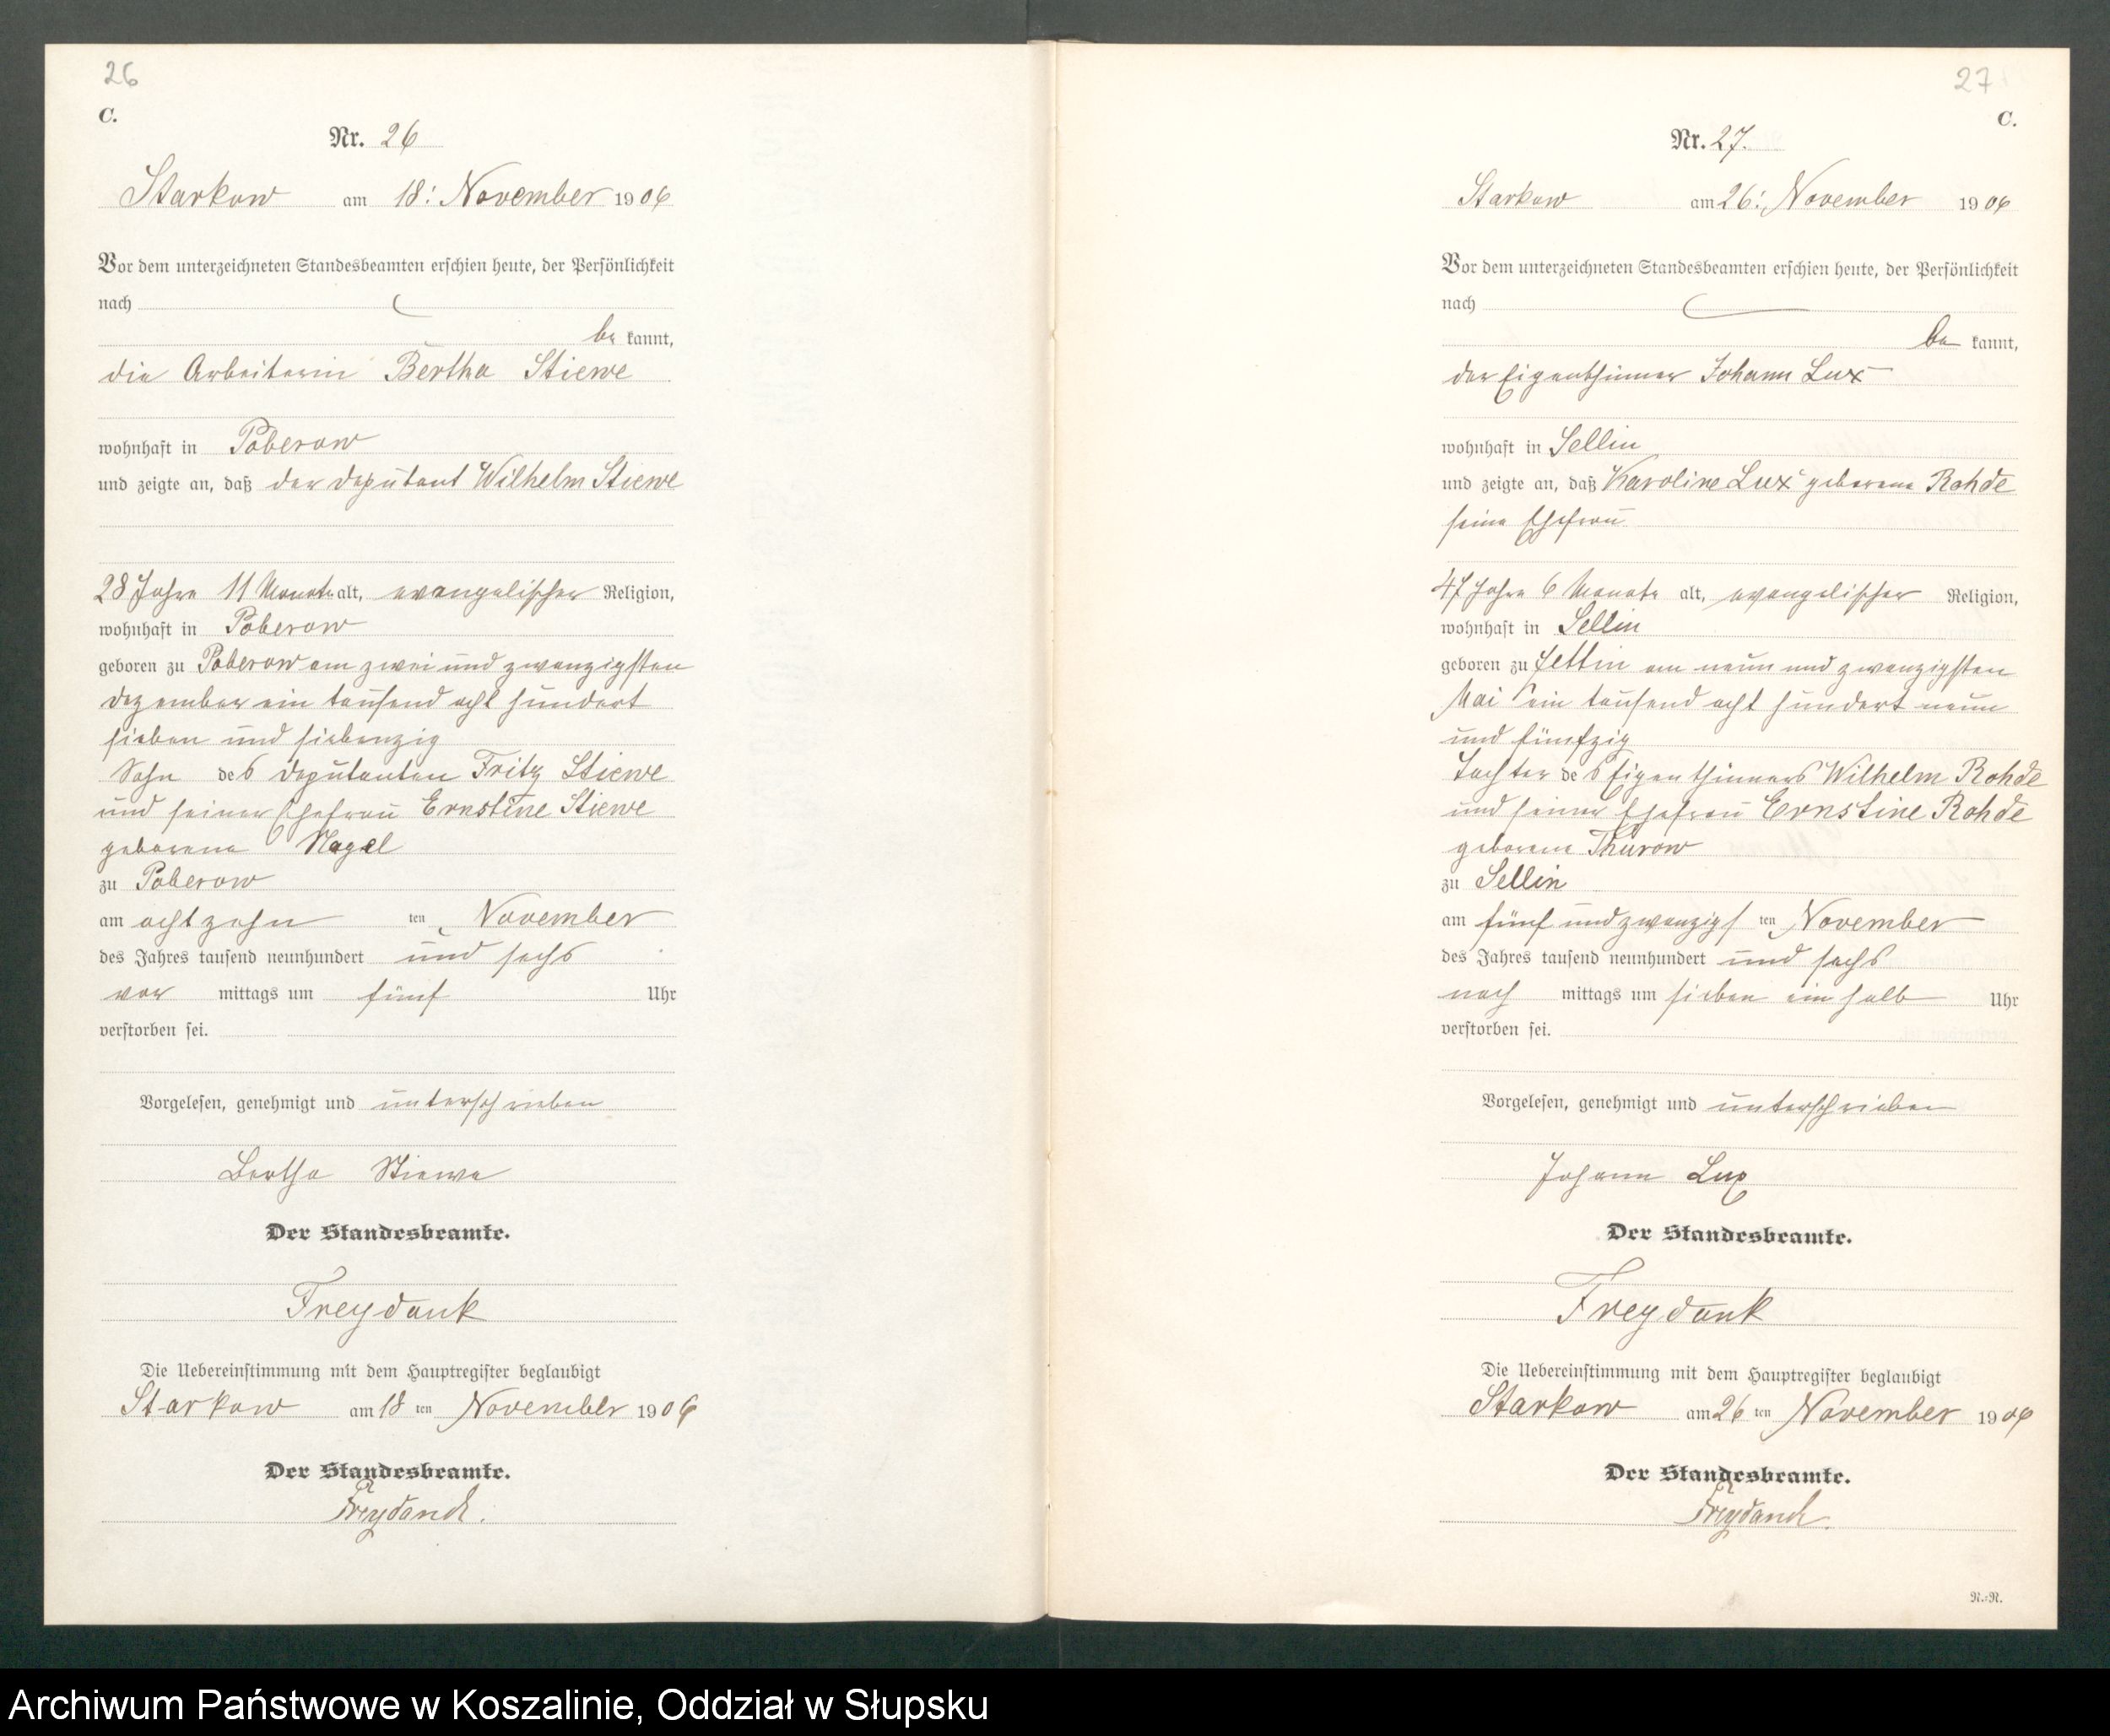 26
C.
Nr. 26
Starkow am 18: November 1906
Vor dem unterzeichneten Standesbeamten erschien heute, der Persönlichkeit
nach
be kannt,
die Arbeiterin Bertha Stiewe
wohnhaft in Poberow
und zeigte an, daß der Deputant Wilhelm Stiewe
28 Jahre 11 Monate alt, evangelischer Religion,
wohnhaft in Poberow
geboren zu Poberow am zwei und zwanzigsten
Dezember ein tausend acht hundert
sieben und siebenzig
Sohn des Deputanten Fritz Stiewe
und seiner Ehefrau Ernstine Stiewe
geborene Nagel
zu Poberow
am achtzehn ten November
des Jahres tausend neunhundert und sechs
vor mittags um fünf Uhr
verstorben sei.
Vorgelesen, genehmigt und unterschrieben
Bertha Stiewe
Der Standesbeamte.
Freydank
Die Uebereinstimmung mit dem Hauptregister beglaubigt
Starkow am 18 ten November 1906
Der Standesbeamte.
Freydank.
27
C.
Nr. 27.
Starkow am 26: November 1906
Vor dem unterzeichneten Standesbeamten erschien heute, der Persönlichkeit
nach
be kannt,
der Eigenthümer Johann Lux
wohnhaft in Sellin
und zeigte an, daß Karoline Lux geborene Rohde
seine Ehefrau
47 Jahre 6 Monate alt, evangelischer Religion,
wohnhaft in Sellin
geboren zu Jettin am neun und zwanzigsten
Mai ein tausend acht hundert neun
und fünfzig
Tochter des Eigenthümers Wilhelm Rohde
und seiner Ehefrau Ernstine Rohde
geborene Thurow
zu Sellin
am fünf und zwanzigs ten November
des Jahres tausend neunhundert und sechs
nach mittags um sieben ein halb Uhr
verstorben sei.
Vorgelesen, genehmigt und unterschrieben
Johann Lux
Der Standesbeamte.
Freydank
Die Uebereinstimmung mit dem Hauptregister beglaubigt
Starkow am 26 ten November 1906
Der Standesbeamte.
Freydank.
N.-R.
Archiwum Państwowe w Koszalinie, Oddział w Słupsku